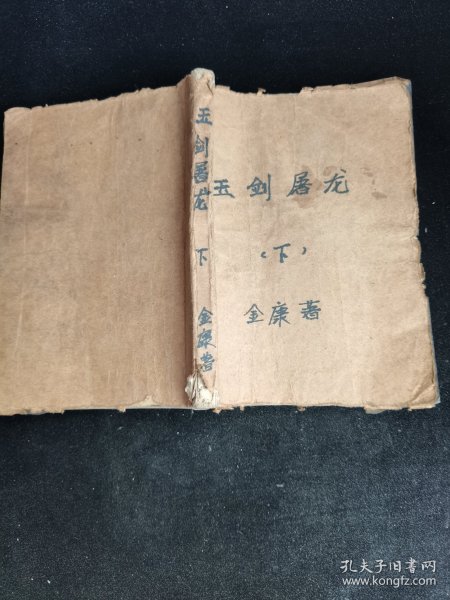 玉剑屠龙
下
金康著
玉剑屠龙
(下)
金康著
孔夫子旧书网
www.kongfz.com